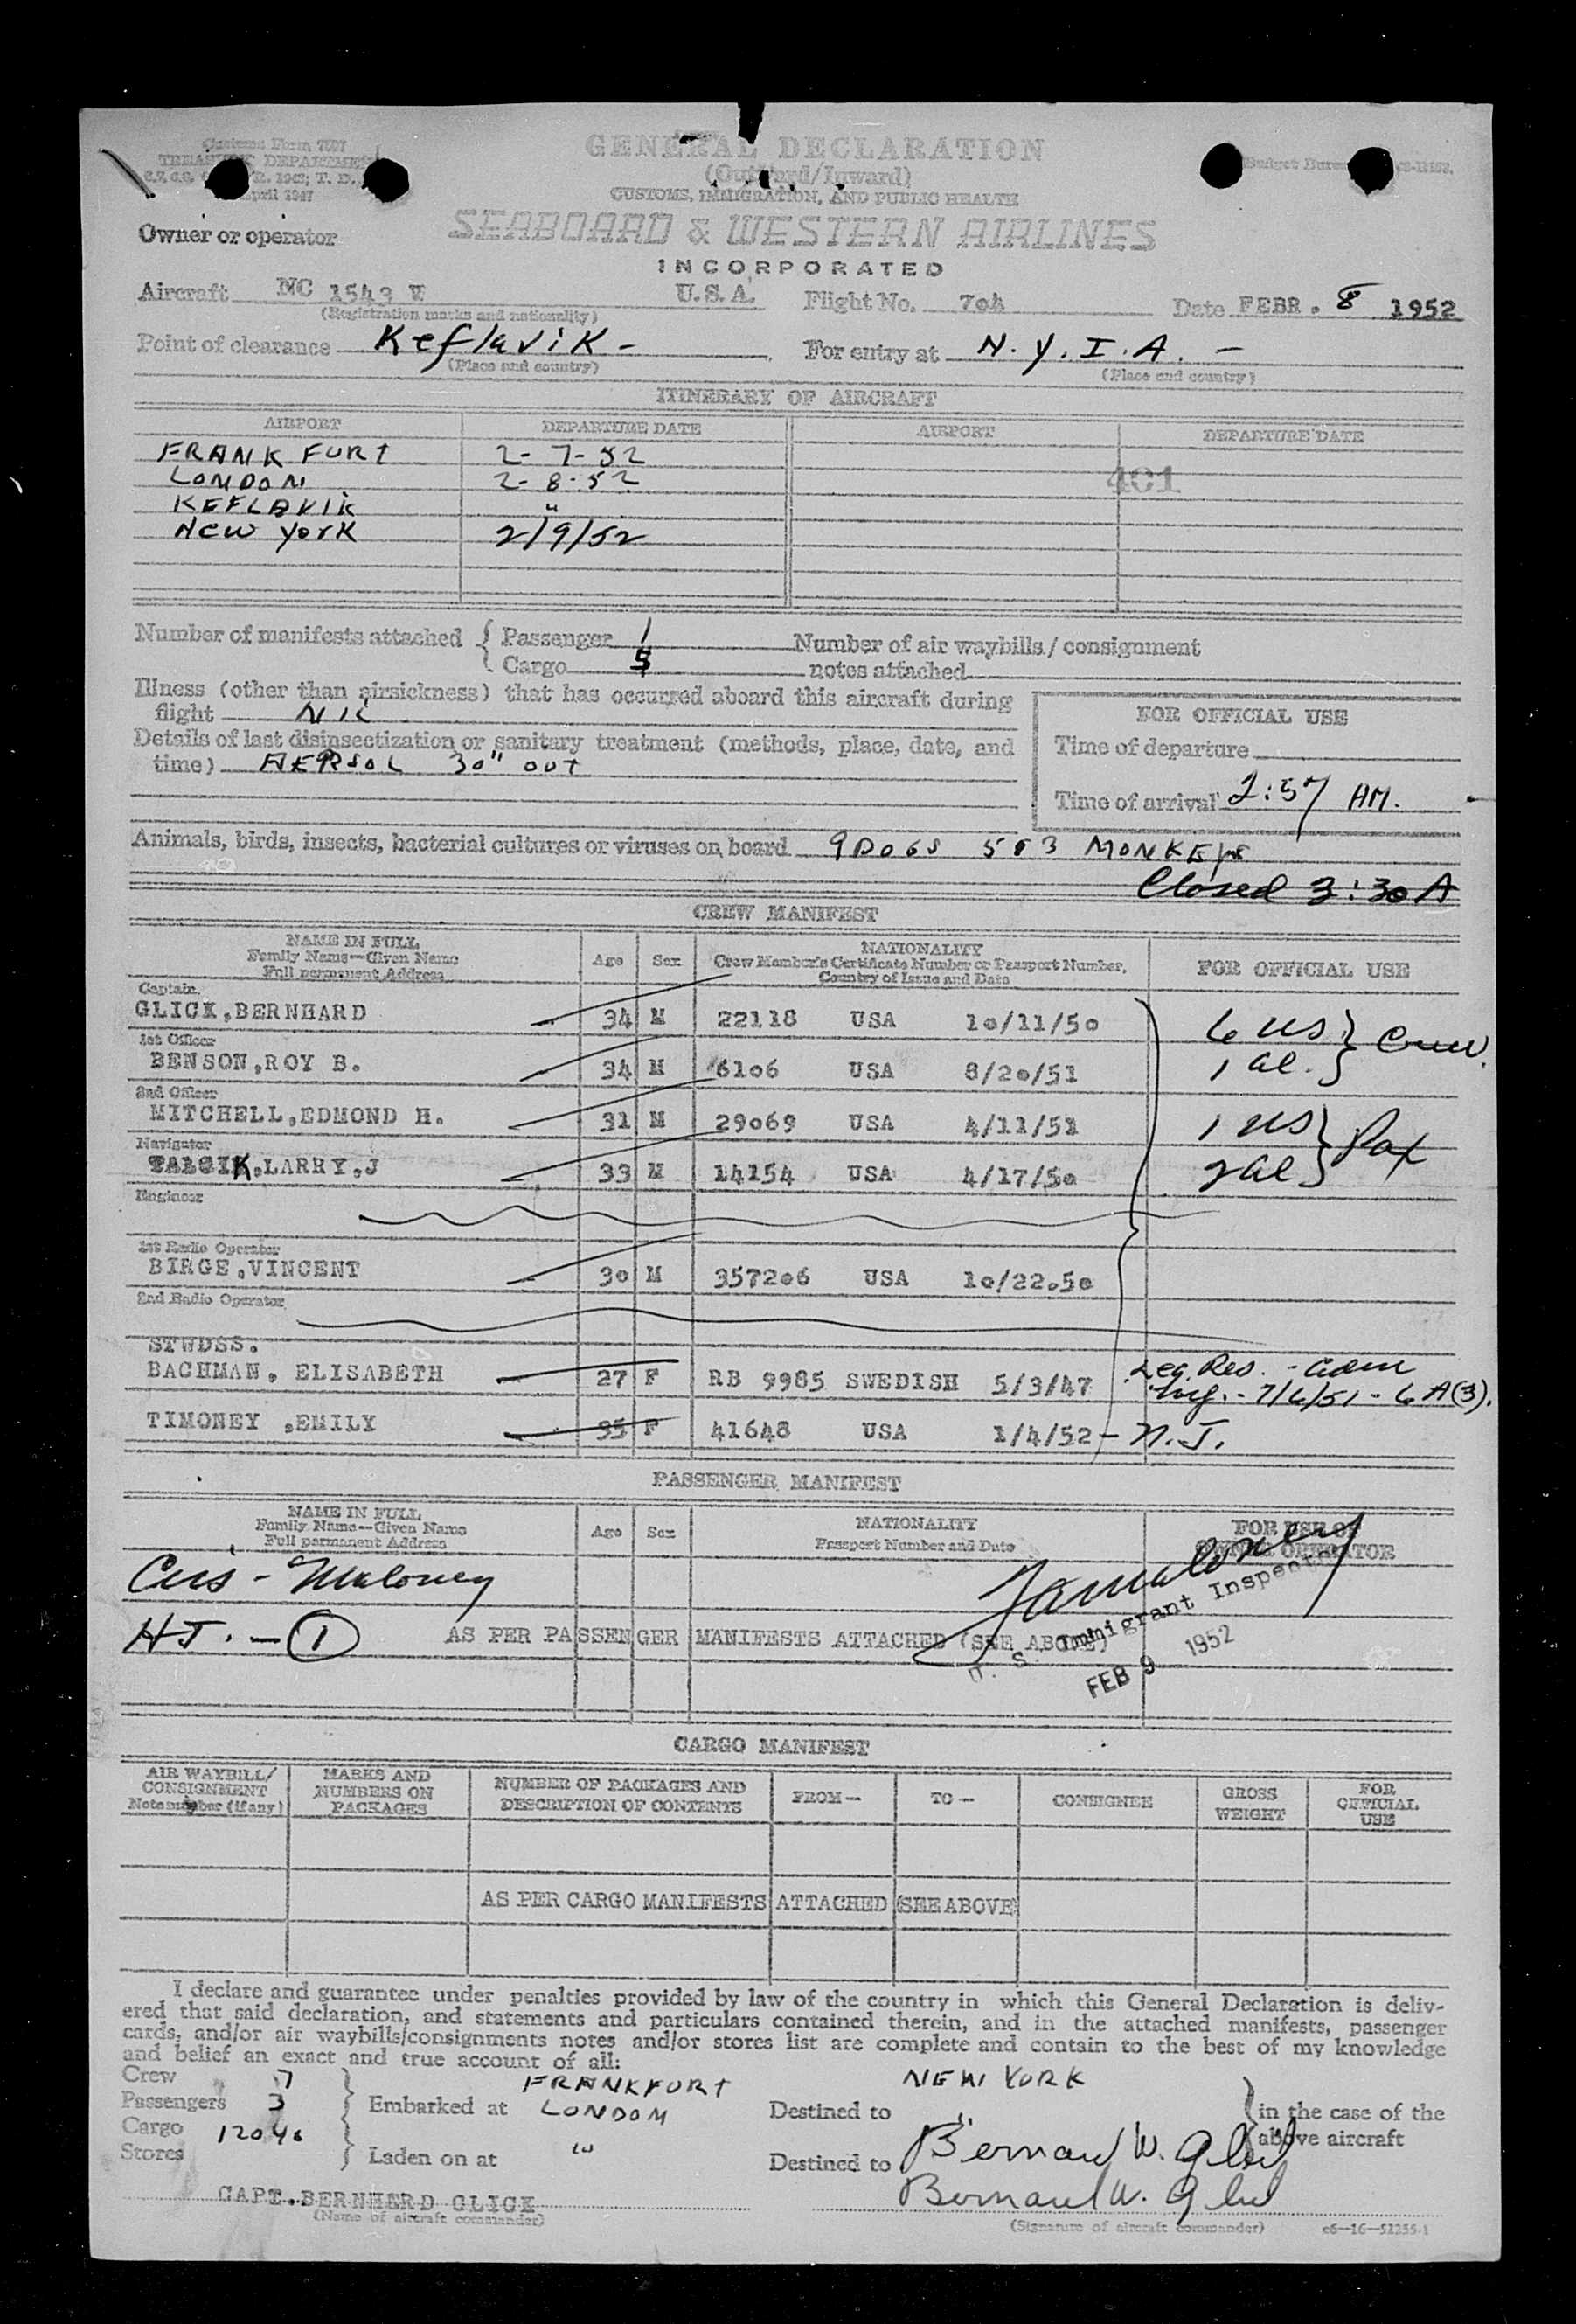 Customs Form 7507
TREASURY DEPARTMENT
April 1947
GENERAL DECLARATION
(Outward/Inward)
CUSTOMS, IMMIGRATION, AND PUBLIC HEALTH
SEABOARD & WESTERN AIRLINES
INCORPORATED
Owner or operator
Aircraft NC 1543 V U.S.A. Flight No. 704 Date FEBR. 8 1952
(Registration marks and nationality)
Point of clearance Keflavik - For entry at N.Y.I.A. -
(Place and country) (Place and country)
ITINERARY OF AIRCRAFT
AIRPORT DEPARTURE DATE AIRPORT DEPARTURE DATE
FRANKFURT 2-7-52
LONDON 2-8-52 401
KEFLAVIK "
New York 2/9/52
Number of manifests attached { Passenger 1 Number of air waybills/consignment
Cargo 5 notes attached
Illness (other than airsickness) that has occurred aboard this aircraft during
flight NIL
FOR OFFICIAL USE
Details of last disinsectization or sanitary treatment (methods, place, date, and
time) AERSOL 30" OUT
Time of departure
Time of arrival 2:57 AM.
Animals, birds, insects, bacterial cultures or viruses on board 9 DOGS 503 MONKEYS
Closed 3:30 A
CREW MANIFEST
NAME IN FULL Age Sex NATIONALITY FOR OFFICIAL USE
Family Name—Given Name Crew Member's Certificate Number or Passport Number,
Full permanent Address Country of Issue and Date
Captain
GLICK,BERNHARD 34 M 22118 USA 10/11/50 6 US } Crew.
1st Officer
BENSON,ROY B. 34 M 6106 USA 8/20/51 1 al. }
2nd Officer
MITCHELL,EDMOND H. 31 M 29069 USA 4/11/51 1 US } Pax
Navigator
LARRY,J 33 M 14154 USA 4/17/50 2 al }
Engineer
1st Radio Operator
BIRGE,VINCENT 30 M 357206 USA 10/22.50
2nd Radio Operator
STWDSS.
BACHMAN, ELISABETH 27 F RB 9985 SWEDISH 5/3/47 Leg. Res. - adm
7/6/51 - 6 A(3).
TIMONEY ,EMILY 35 F 41648 USA 1/4/52 - N.J.
PASSENGER MANIFEST
NAME IN FULL Age Sex NATIONALITY FOR USE OF
Family Name—Given Name Passport Number and Date OWNER OPERATOR
Full permanent Address
Cus - Maloney
HJ. - 1 AS PER PASSENGER MANIFESTS ATTACHED (SEE ABOVE)
U. S. Immigrant Inspector
FEB 9 1952
CARGO MANIFEST
AIR WAYBILL/ MARKS AND NUMBER OF PACKAGES AND FROM— TO— CONSIGNEE GROSS FOR
CONSIGNMENT NUMBERS ON DESCRIPTION OF CONTENTS WEIGHT OFFICIAL
Note number (if any) PACKAGES USE
AS PER CARGO MANIFESTS ATTACHED (SEE ABOVE)
I declare and guarantee under penalties provided by law of the country in which this General Declaration is deliv-
ered that said declaration, and statements and particulars contained therein, and in the attached manifests, passenger
cards, and/or air waybills/consignments notes and/or stores list are complete and contain to the best of my knowledge
and belief an exact and true account of all:
Crew 7 FRANKFURT NEW YORK
Passengers 3 Embarked at LONDON Destined to " in the case of the
Cargo 12046 above aircraft
Stores Laden on at " Destined to Bernard W. Glick
CAPT.BERNHERD GLICK Bernard W. Glick
(Name of aircraft commander) (Signature of aircraft commander) c6—16—52255-1